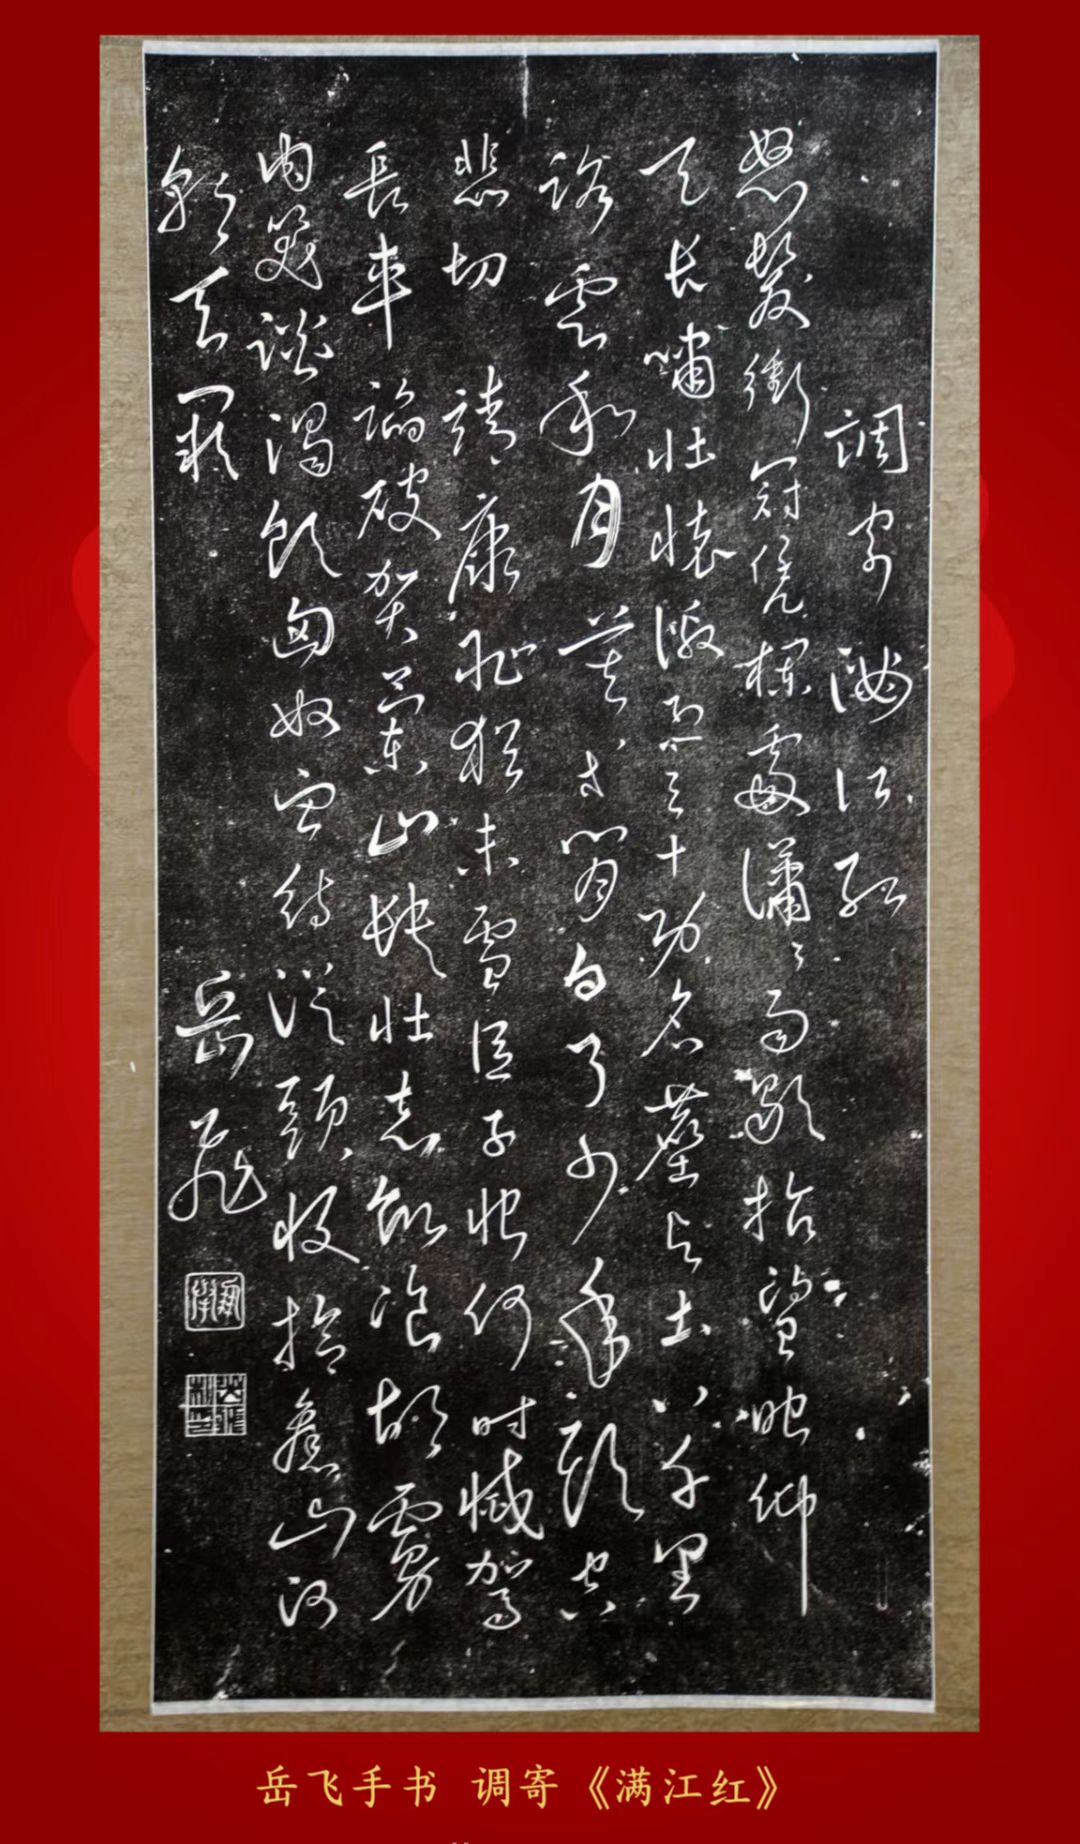 調寄滿江紅
怒髮衝冠凭欄處瀟〻雨歇抬望眼仰
天長嘯壯懷激烈三十功名塵與土八千里
路雲和月莫等閒白了少年頭空
悲切 靖康恥猶未雪臣子恨何時滅駕
長車踏破賀蘭山缺壯志飢飡胡虜
肉笑談渴飲匈奴血待從頭收拾舊山河
朝天闕 岳飛
岳飞手书 调寄《满江红》